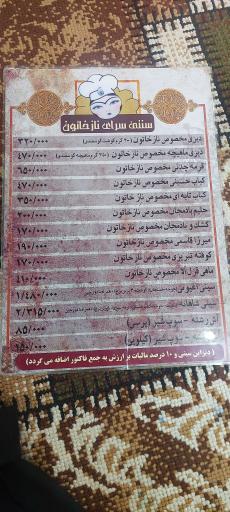 سنتی سرای نازخاتون
دیزی مخصوص نازخاتون (۹۰ گرم گوشت گوسفندی) ۳۲۰/۰۰۰
دیزی ماهیچه مخصوص نازخاتون ۴۷۰/۰۰۰
قرمه جذنی مخصوص نازخاتون ۶۵۰/۰۰۰
کباب حسینی مخصوص نازخاتون ۴۷۰/۰۰۰
کباب تابه ای مخصوص نازخاتون ۳۵۰/۰۰۰
حلیم بادمجان مخصوص نازخاتون ۲۰۰/۰۰۰
کشک و بادمجان مخصوص نازخاتون ۱۷۰/۰۰۰
میرزا قاسمی مخصوص نازخاتون ۱۹۰/۰۰۰
کوفته تبریزی مخصوص نازخاتون ۱۷۰/۰۰۰
ماهی قزل آلا مخصوص نازخاتون ۴۱۰/۰۰۰
سینی ۱/۴۸۰/۰۰۰
سینی شاهانه ۲/۳۱۵/۰۰۰
آش رشته - سوپ شیر (پرسی) ۸۵/۰۰۰
سوپ شیر (کیلویی)
( دیزاین سینی و ۱۰ درصد مالیات بر ارزش به جمع فاکتور اضافه می گردد )